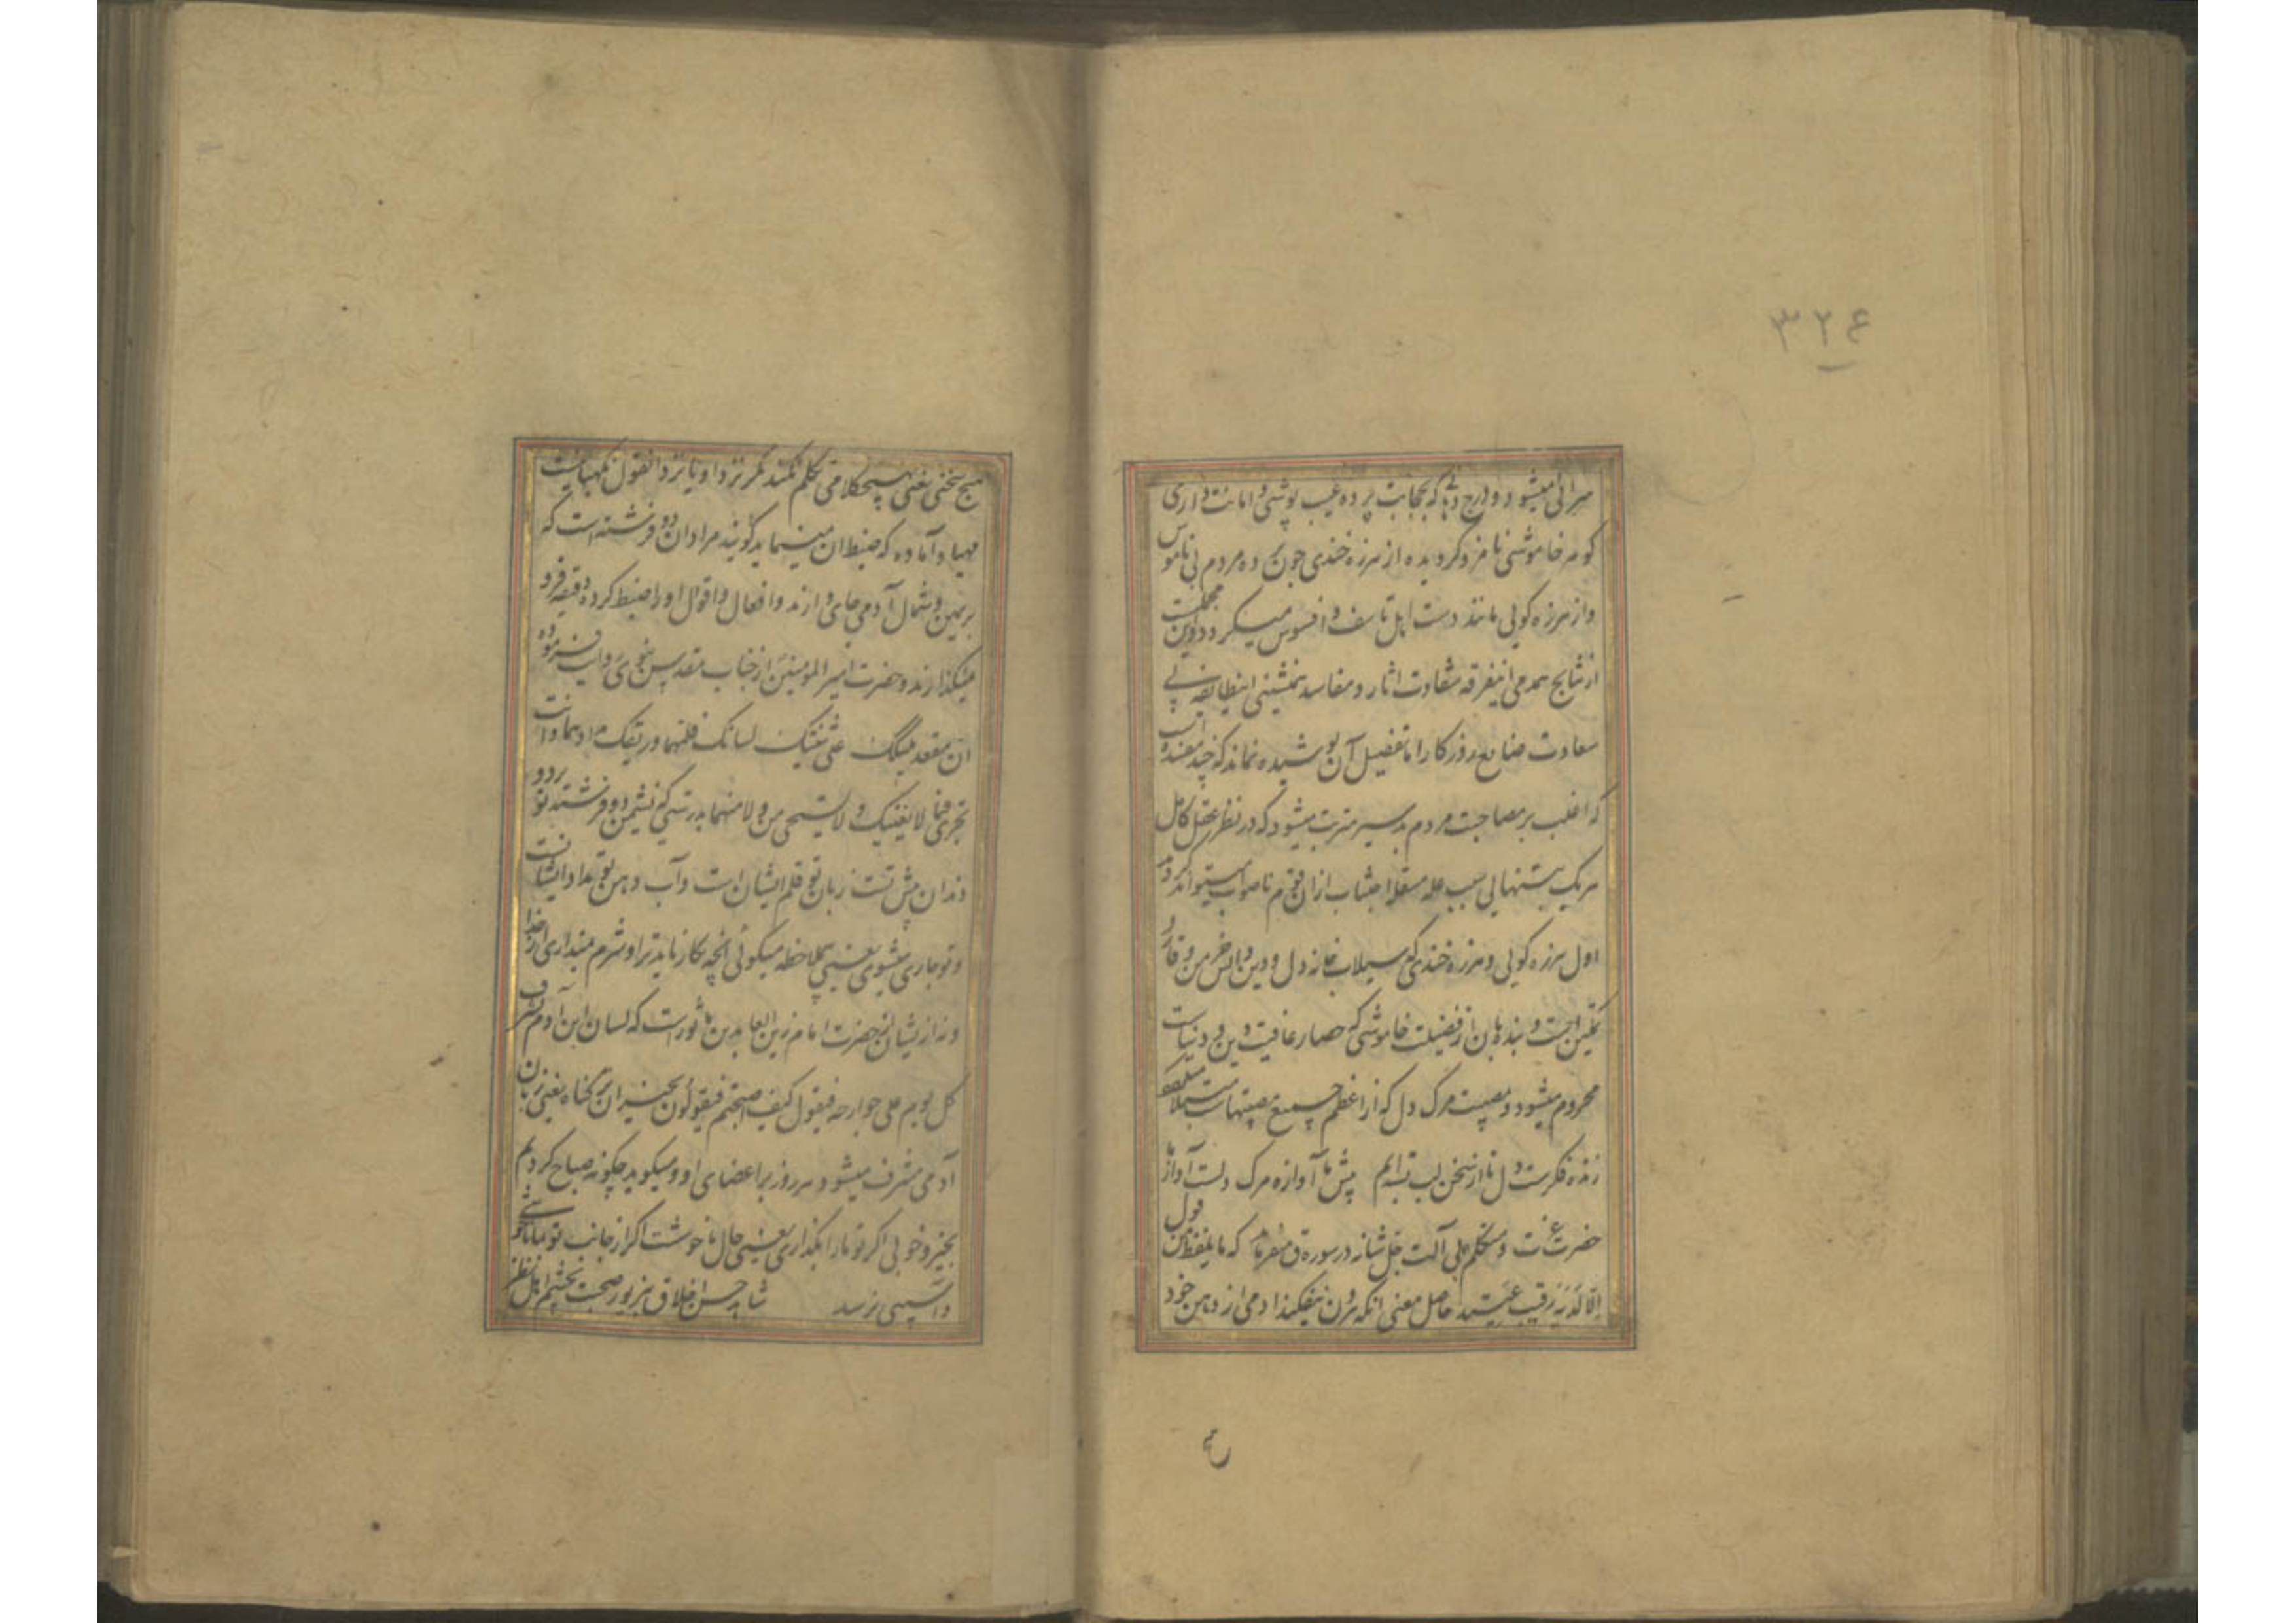 ۳۲۶
سرائی میشود و درج دهانی که بحجابت پرده عیب پوشی و امانت داری
کوهر خاموشی نامزد کردیده از هرزه خندی چون ده مردم بی ناموس
و از هرزه کوئی مانند دست اهل تاسف و افسوس میکردد و این مجملیست
از نتایج همدمی اینفرقه شقاوت اثار و مفاسد همنشینی اینطایفه بی
سعادت ضایع روزکار اما تفصیل آن پوشیده نماند که چند مفسده است
که اغلب بر مصاحبت مردم بد سیر مترتب میشود که در نظر عقل کامل
هریک بتنهایی سبب اجتناب ازان قوم ناصواب میتواند کردید
اول هرزه کوئی و هرزه خندی که سیلاب خانه دل و دین و آتش خرمن وقار و
تمکین است و بنده بان از فضیلت خاموشی که حصار عافیت دین و دنیاست
محروم میشود و بمصیبت مرک دل که از اعظم جمیع مصیبتهاست مبتلا
زنده فکرست دل تا از سخن لب بسته‌ایم پیش ما آوازه مرک دلست آوازها
حضرت عزت و متکلم بی آلت جل شانه در سوره ق میفرماید که ما یلفظ من قول
الا لدیه رقیب عتید حاصل معنی انکه برون نیفکند ادمی از دهن خود
هیچ سخنی یعنی بهیچکلامی تکلم نکند مکر نزد او یا نزد انقول نکهبانیست
مهیا و آماده که ضبط ان مینماید کویند مراد ان دو فرشته است که
بر یمین و شمال آدمی جای دارند و افعال و اقوال او را ضبط کرده دقیقه فرو
نمیکذارند و حضرت امیر المومنین از جناب مقدس نبوی روایت فرموده
ان مقعد ملکیک علی ثنیتیک لسانک قلمهما و ریقک مدادهما و انت
تجری فیما لا یعنیک و لا تستحیی من الله و لا منهما بدرستی که نشیمن دو فرشته تو بر دو
دندان پیش تست زبان تو قلم ایشان است و آب دهن تو مداد ایشانست
و تو جاری میشوی یعنی بیملاحظه میکوئی انچه بکار نیاید ترا و شرم نمیداری از خدا
و نه از ایشان از حضرت امام زین العابدین ماثورست که لسان ابن آدم یشرف
کل یوم علی جوارحه فیقول کیف اصبحتم فیقولون بخیر ان ترکتنا یعنی زبان
آدمی مشرف میشود هر روز بر اعضای او و میکوید چکونه صباح کردیم
بخیر و خوبی اکر تو ما را بکذاری یعنی حال ما خوشست اکر از جانب تو بما نا خوشی
و اسیبی نرسد شاهد حسن اخلاق بزیور صحبت بچشم اهل نظر